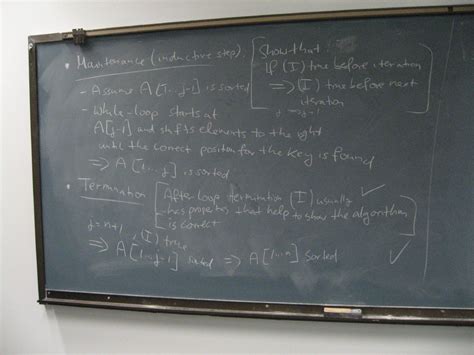 • Maintenance (inductive step) [Show that:
If (I) true before iteration
⇒ (I) true before next
iteration]
- Assume A[1...j-1] is sorted
- While-loop starts at
A[j-1] and shifts elements to the right
until the correct position for the key is found
⇒ A[1...j] is sorted
• Termination [After loop termination (I) usually
has properties that help to show the algorithm
is correct] ✓
j = n+1
(I) true
⇒ A[1...j-1] sorted ⇒ A[1...n] sorted ✓